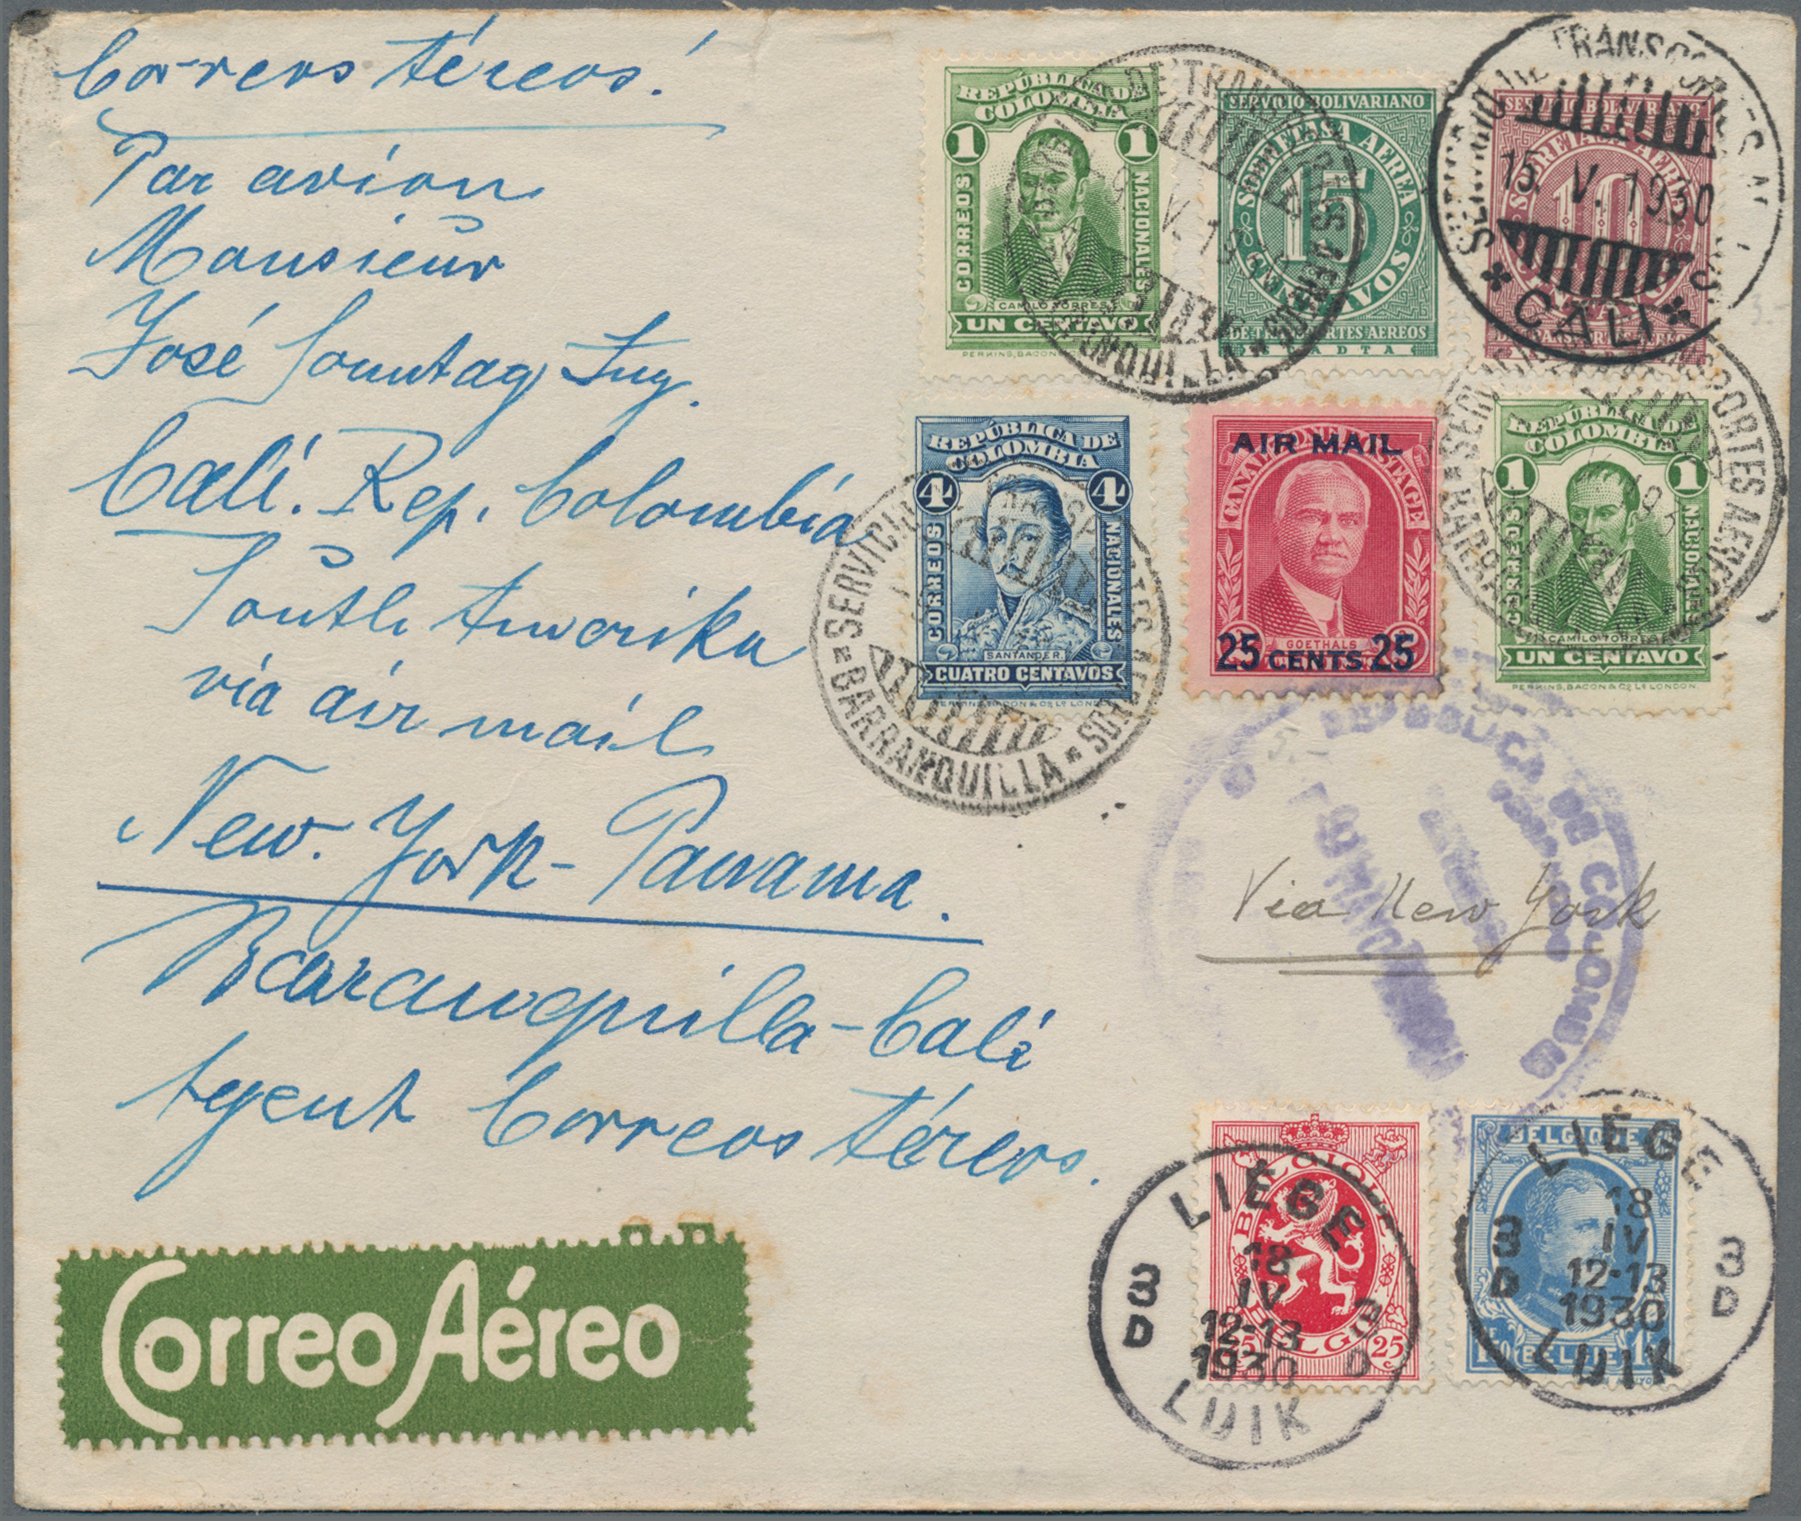 Correos Aéreos!
Par avion
Monsieur
José Sonntag Ing.
Cali. Rep. Colombia
South Amerika
via air mail
New-York-Panama.
Baranquilla-Cali
Agent Correos Aéreos.
Correo Aéreo
REPÚBLICA DE
COLOMBIA
1 1
CORREOS NACIONALES
CAMILO TORRES
UN CENTAVO
SERVICIO BOLIVARIANO
SOBRETASA AEREA
15
CENTAVOS
DE TRANSPORTES AEREOS
SCADTA
SERVICIO BOLIVARIANO
SOBRETASA AEREA
10
15. V. 1930
CALI
REPÚBLICA DE
COLOMBIA
4 4
CORREOS NACIONALES
SANTANDER.
CUATRO CENTAVOS
SERVICIO
BARRANQUILLA
AIR MAIL
CANAL ZONE POSTAGE
GOETHALS
25 CENTS 25
REPÚBLICA DE
COLOMBIA
1 1
CORREOS NACIONALES
CAMILO TORRES
UN CENTAVO
PERKINS, BACON & Co. Ld. LONDON.
REPUBLICA DE COLOMBIA
Via New York
LIÉGE
18
IV
12-13
1930
LUIK
3
D
3
D
25 25
BELGIQUE
LIÉGE
18
IV
12-13
1930
LUIK
3
D
3
D
BELGIË